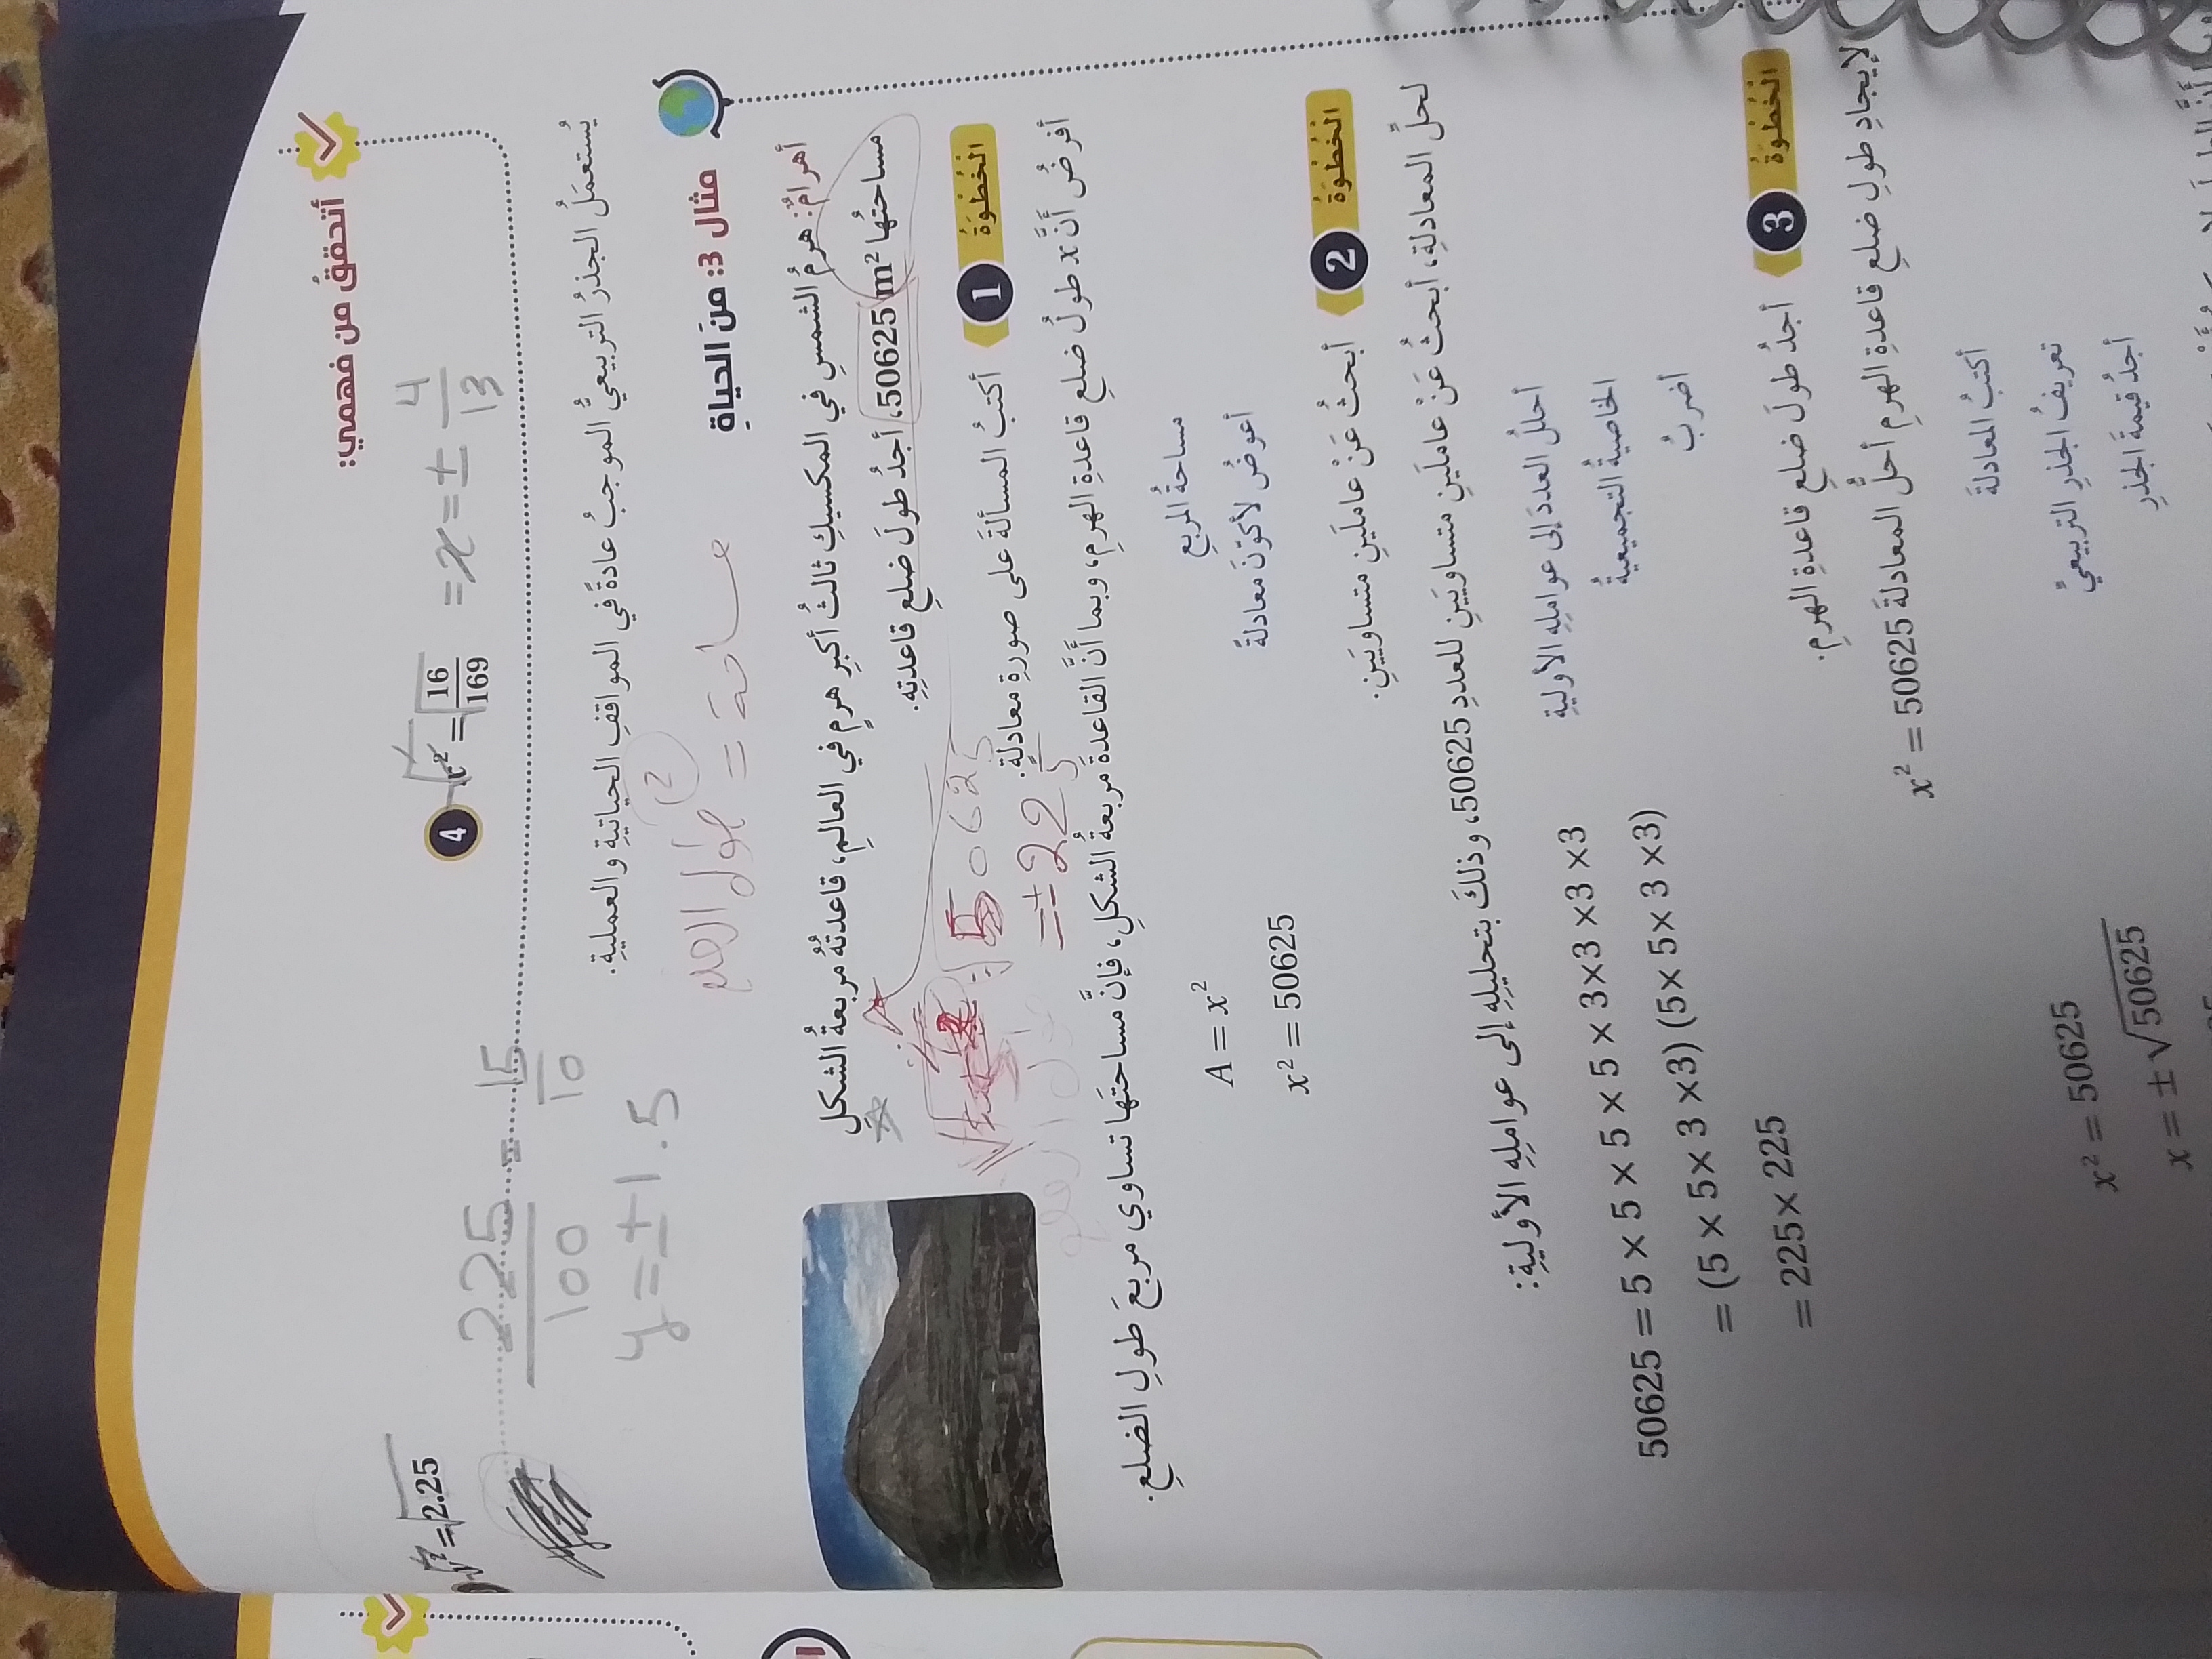 أتحققُ من فهمي:
y² = 2.25
4 x² = 16/169
= x = ± 4/13
225/100 = 15/10
y = ± 1.5
يُستعمَلُ الجذرُ التربيعيُّ الموجبُ عادةً في المواقفِ الحياتيةِ والعمليةِ.
مثال 3: منَ الحياةِ
أهرامٌ: هرمُ الشمسِ في المكسيكِ ثالثُ أكبرِ هرمٍ في العالمِ، قاعدتُهُ مربعةُ الشكلِ
مساحتُها 50625 m²، أجدُ طولَ ضلعِ قاعدتِهِ.
50625
= ± 225
الْخُطْوَةُ 1 أكتبُ المسألةَ على صورةِ معادلةٍ.
أفرضُ أنَّ x طولُ ضلعِ قاعدةِ الهرمِ، وبما أنَّ القاعدةَ مربعةُ الشكلِ، فإنَّ مساحتَها تساوي مربعَ طولِ الضلعِ.
A = x² مساحةُ المربعِ
x² = 50625 أعوضُ لأكوّنَ معادلةً
الْخُطْوَةُ 2 أبحثُ عَنْ عاملَينِ متساويَينِ.
لحلِّ المعادلةِ، أبحثُ عَنْ عاملَينِ متساويَينِ للعددِ 50625، وذلكَ بتحليلِهِ إلى عواملِهِ الأوليةِ:
50625 = 5 × 5 × 5 × 5 × 3×3 ×3 ×3 أحللُ العددَ إلى عواملِهِ الأوليةِ
= (5 × 5× 3 ×3) (5× 5× 3 ×3) الخاصيةُ التجميعيةُ
= 225× 225 أضربُ
الْخُطْوَةُ 3 أجدُ طولَ ضلعِ قاعدةِ الهرمِ.
لإيجادِ طولِ ضلعِ قاعدةِ الهرمِ أحلُّ المعادلةَ x² = 50625
x² = 50625 أكتبُ المعادلةَ
x = ± √50625 تعريفُ الجذرِ التربيعيِّ
أجدُ قيمةَ الجذرِ